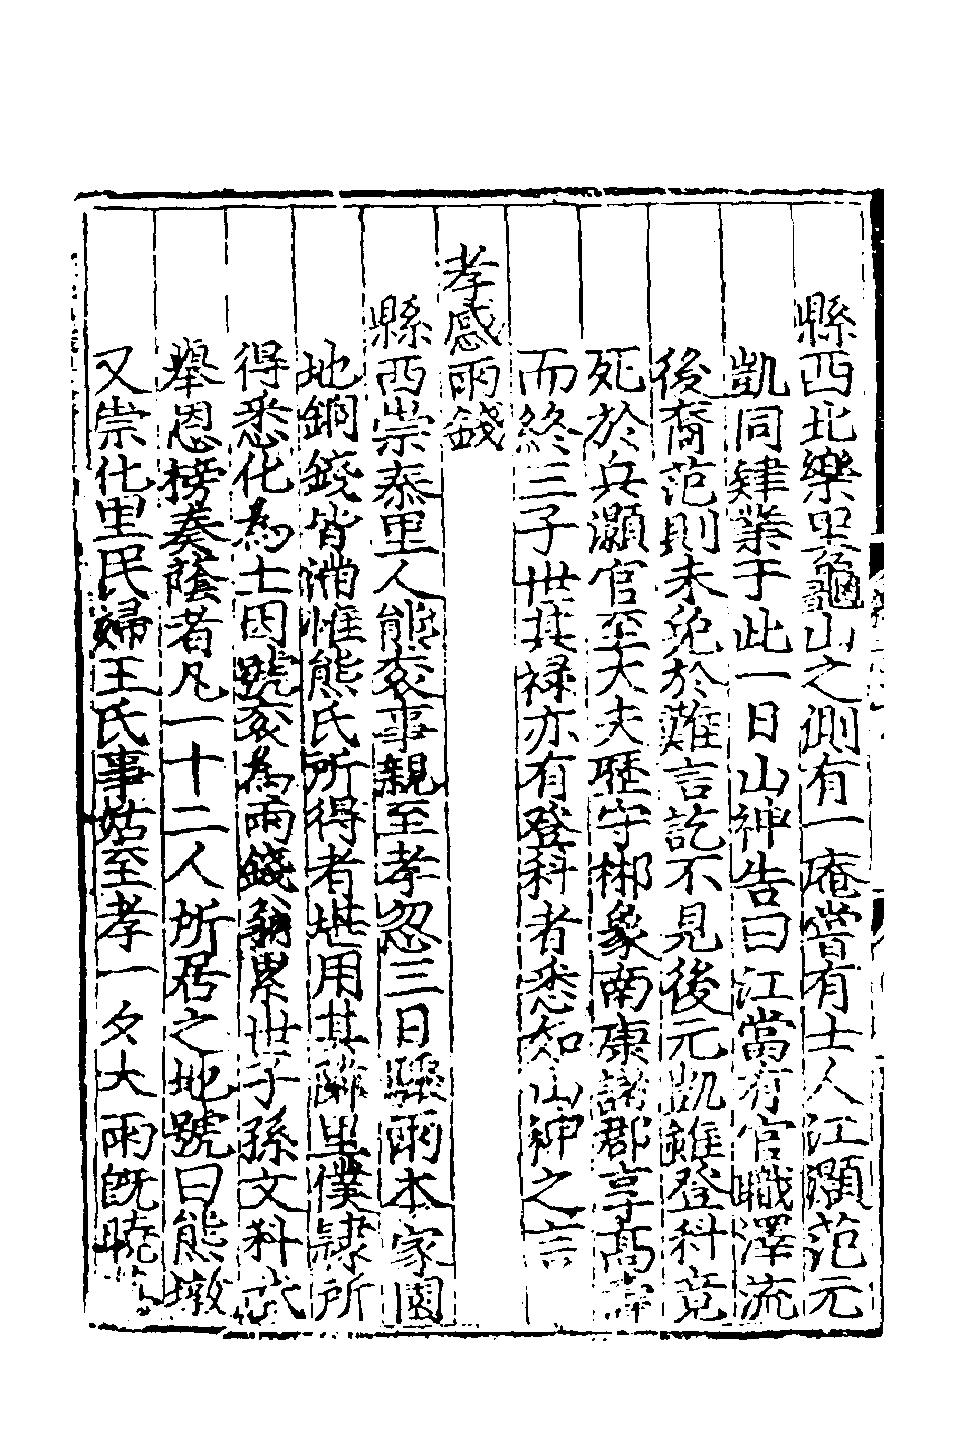 縣西北樂里龜山之側有一庵嘗有士人江灝范元
凱同肄業于此一日山神告曰江當有官職澤流
後裔范則未免於難言訖不見後元凱雖登科竟
死於兵灝官至大夫歷守郴象南康諸郡享高壽
而終三子世其祿亦有登科者悉如山神之言
孝感雨錢
縣西崇泰里人熊衮事親至孝忽三日驟雨本家園
地銅錢皆滿惟熊氏所得者堪用其隣里僕隸所
得悉化為土因號衮為雨錢翁累世子孫文科武
舉恩榜奏蔭者凡一十二人所居之地號曰熊墩
又崇化里民婦王氏事姑至孝一夕大雨旣曉